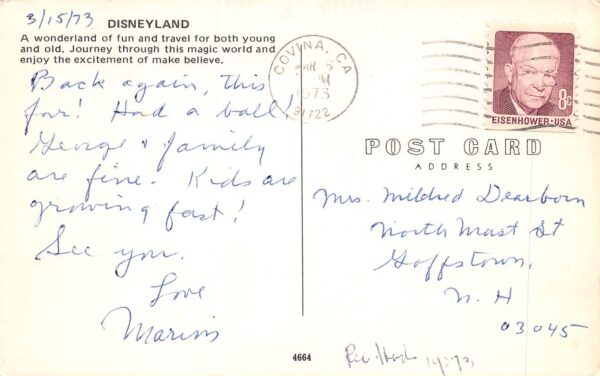 3/15/73
DISNEYLAND
A wonderland of fun and travel for both young
and old. Journey through this magic world and
enjoy the excitement of make believe.
Back again, this
far! Had a ball!
George & family
are fine. Kids are
growing fast!
See you.
Love
Marion
4664
COVINA, CA
PM
1973
91722
EISENHOWER·USA
8c
POST CARD
ADDRESS
Mrs. Mildred Dearborn
North Mast St
Goffstown,
N. H
03045